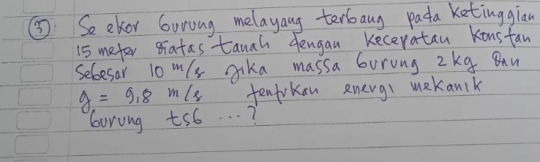 ③. Se ekor burung melayang terbang pada ketinggian
15 meter diatas tanah dengan kecepatan konstan
sebesar 10 m/s jika massa burung 2 kg dan
g = 9,8 m/s tentukan energi mekanik
burung tsb ...?